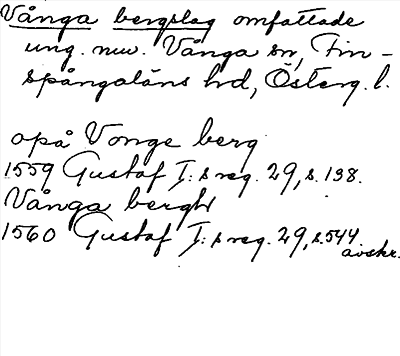 Vånga bergslag omfattade
ung. nuv. Vånga sn, Fin-
spångaläns hd, Österg. l.
opå Vonge berg
1559 Gustaf I:s reg. 29, s. 138.
Vånga berghr
1560 Gustaf I:s reg. 29, s. 544
avskr.